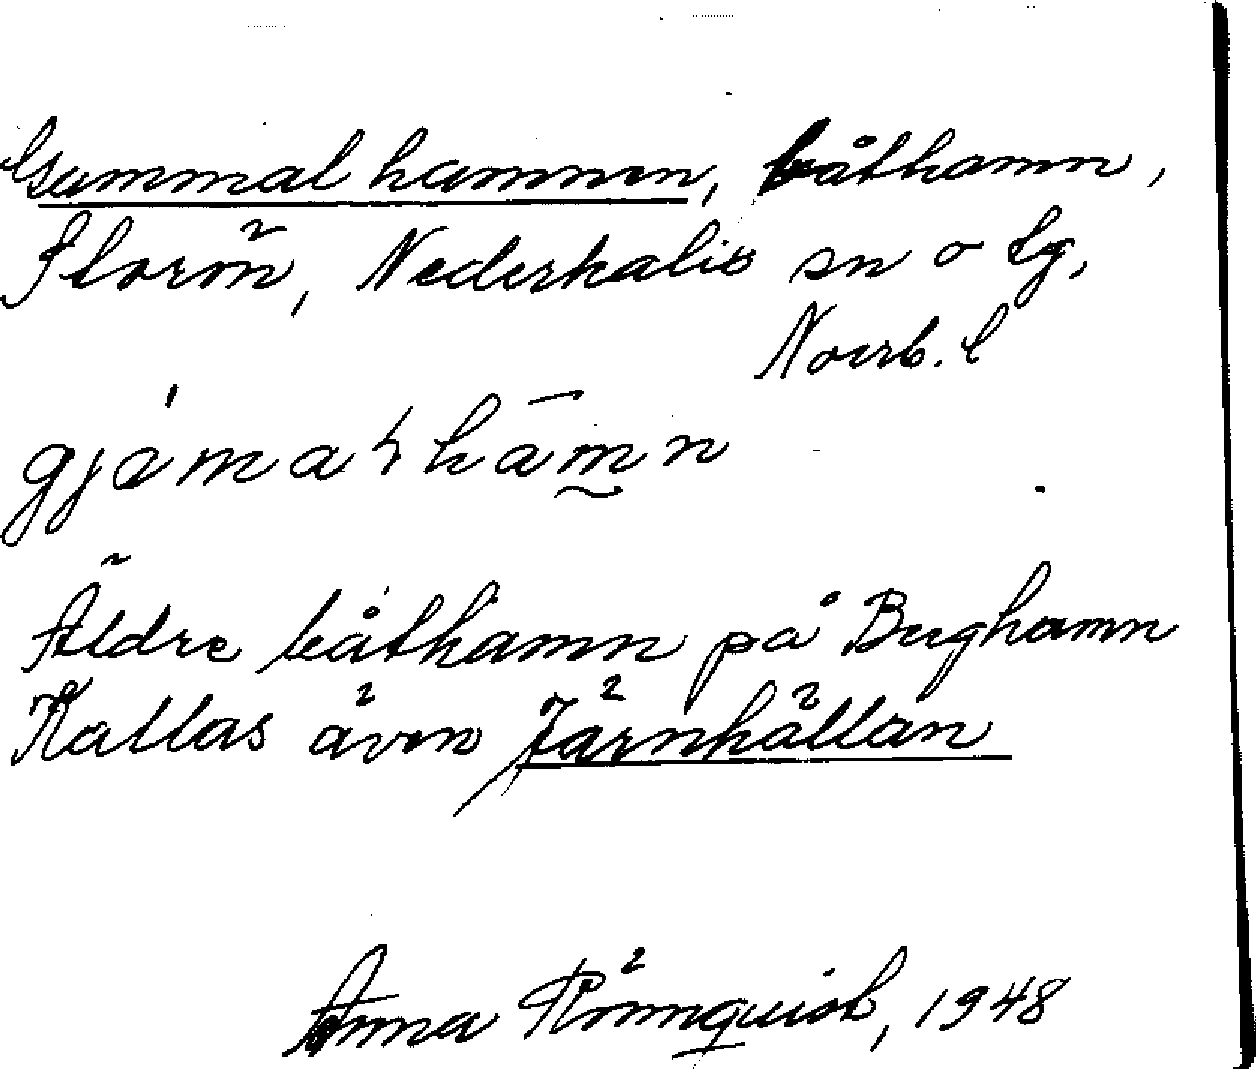 Gammalhamnen, båthamn,
Florön, Nederkalix sn o lg,
Norrb. l
Äldre båthamn på Berghamn
Kallas även Järnhällan
Anna Rönnquist, 1948